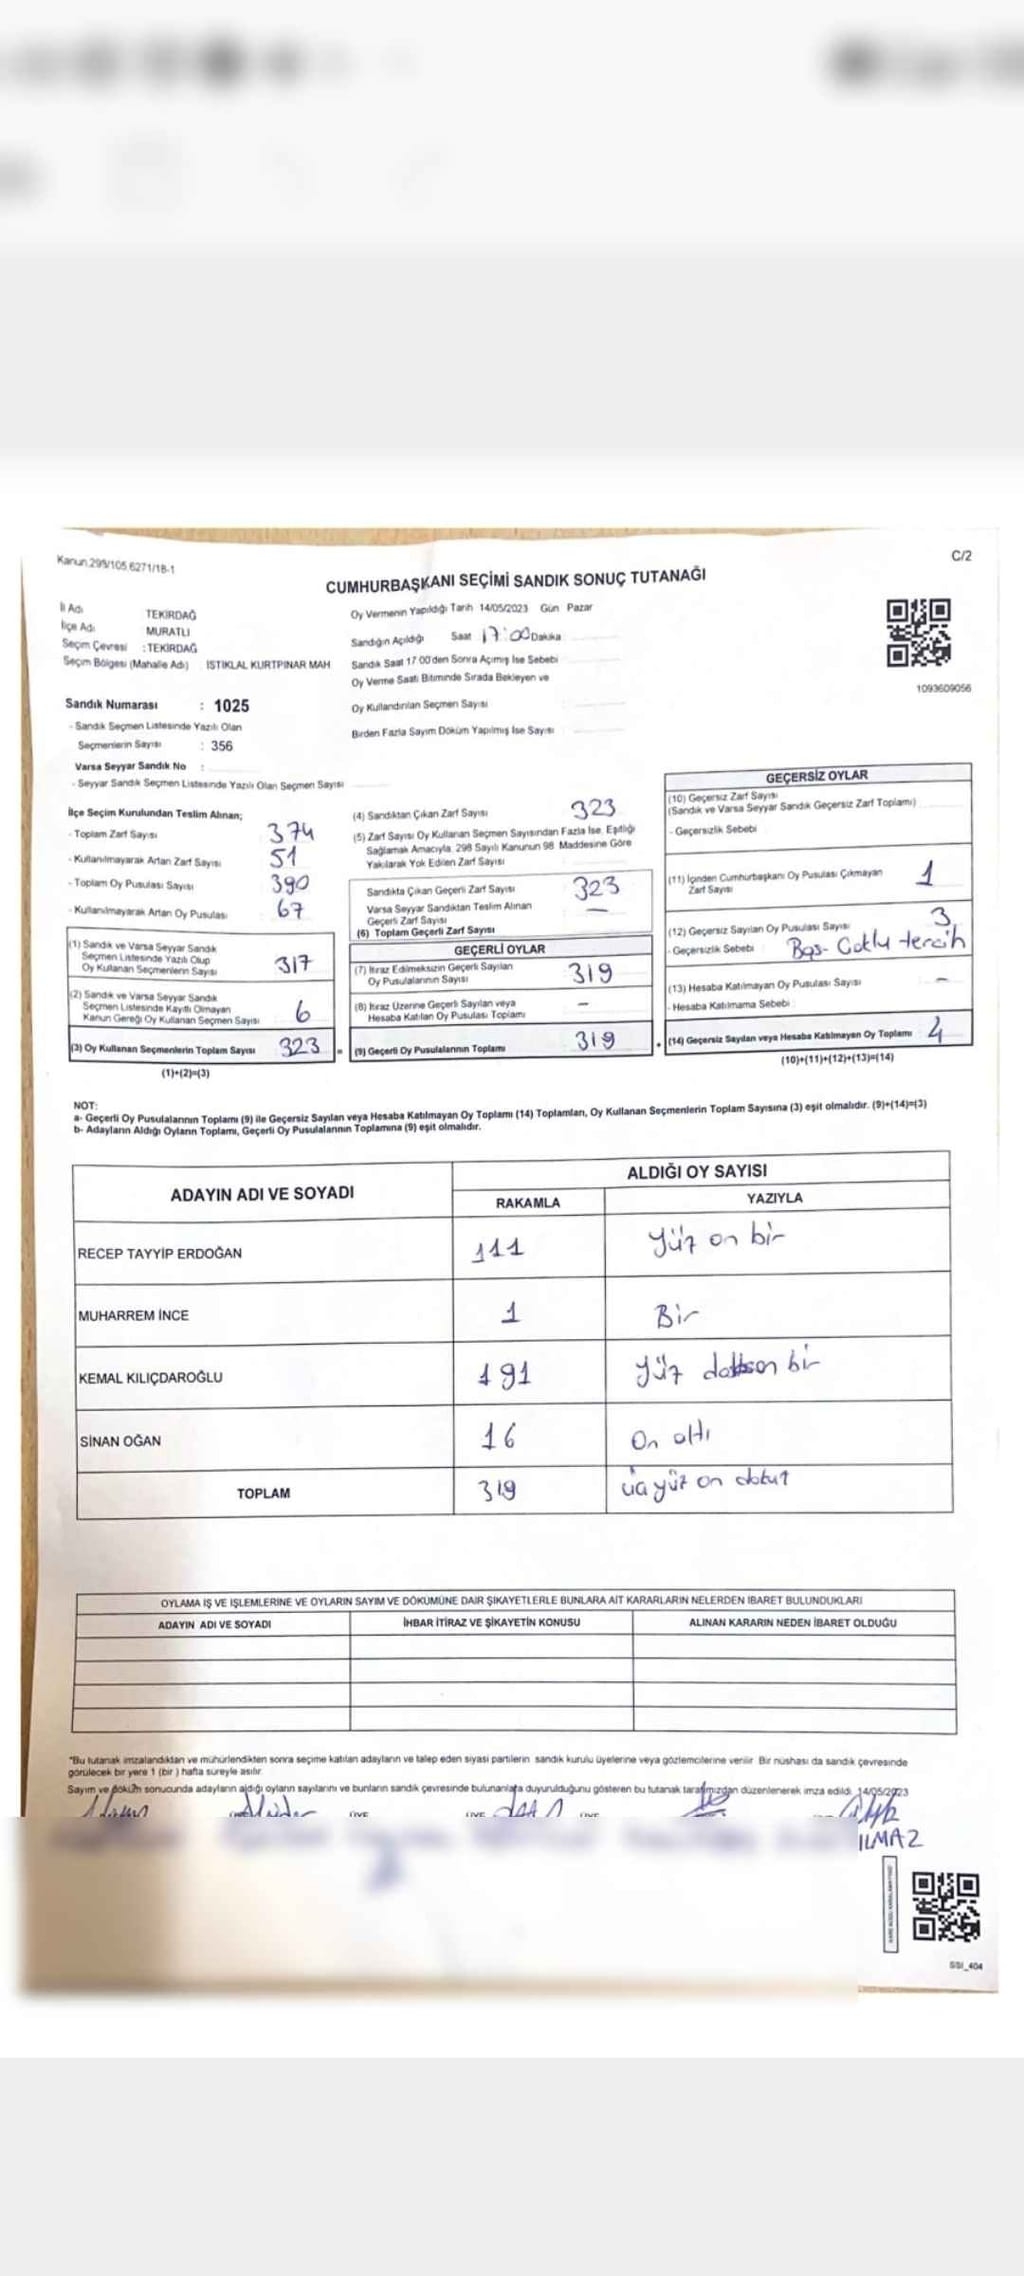 Kanun.298/105,6271/18-1
C/2
CUMHURBAŞKANI SEÇİMİ SANDIK SONUÇ TUTANAĞI
İl Adı TEKİRDAĞ
İlçe Adı MURATLI
Seçim Çevresi : TEKİRDAĞ
Seçim Bölgesi (Mahalle Adı) ISTIKLAL KURTPINAR MAH
Oy Vermenin Yapıldığı Tarih 14/05/2023 Gün Pazar
Sandığın Açıldığı Saat 17:00 Dakika
Sandık Saat 17 00'den Sonra Açımış Ise Sebebi
Oy Verme Saati Bitiminde Sırada Bekleyen ve
Oy Kullandırılan Seçmen Sayısı
Birden Fazla Sayım Döküm Yapılmış Ise Sayısı
1093609056
Sandık Numarası : 1025
- Sandık Seçmen Listesinde Yazılı Olan
Seçmenlerin Sayısı : 356
Varsa Seyyar Sandık No :
- Seyyar Sandık Seçmen Listesinde Yazılı Olan Seçmen Sayısı
İlçe Seçim Kurulundan Teslim Alınan;
- Toplam Zarf Sayısı 374
- Kullanılmayarak Artan Zarf Sayısı 51
- Toplam Oy Pusulası Sayısı 390
- Kullanılmayarak Artan Oy Pusulası 67
(1) Sandık ve Varsa Seyyar Sandık
Seçmen Listesinde Yazılı Olup
Oy Kullanan Seçmenlerin Sayısı 317
(2) Sandık ve Varsa Seyyar Sandık
Seçmen Listesinde Kayıtlı Olmayan
Kanun Gereği Oy Kullanan Seçmen Sayısı 6
(3) Oy Kullanan Seçmenlerin Toplam Sayısı 323 =
(1)+(2)=(3)
(4) Sandıktan Çıkan Zarf Sayısı 323
(5) Zarf Sayısı Oy Kullanan Seçmen Sayısından Fazla Ise, Eşitliği
Sağlamak Amacıyla, 298 Sayılı Kanunun 98. Maddesine Göre
Yakılarak Yok Edilen Zarf Sayısı
Sandıkta Çıkan Geçerli Zarf Sayısı 323
Varsa Seyyar Sandıktan Teslim Alınan
Geçerli Zarf Sayısı —
(6) Toplam Geçerli Zarf Sayısı
GEÇERLİ OYLAR
(7) Itiraz Edilmeksizin Geçerli Sayılan
Oy Pusulalarının Sayısı 319
(8) Itiraz Üzerine Geçerli Sayılan veya
Hesaba Katılan Oy Pusulası Toplamı -
(9) Geçerli Oy Pusulalarının Toplamı 319 +
GEÇERSİZ OYLAR
(10) Geçersiz Zarf Sayısı
(Sandık ve Varsa Seyyar Sandık Geçersiz Zarf Toplamı)
- Geçersizlik Sebebi
(11) İçinden Cumhurbaşkanı Oy Pusulası Çıkmayan
Zarf Sayısı 1
(12) Geçersiz Sayılan Oy Pusulası Sayısı 3
- Geçersizlik Sebebi Boş- Çoklu tercih
(13) Hesaba Katılmayan Oy Pusulası Sayısı -
- Hesaba Katılmama Sebebi
(14) Geçersiz Sayılan veya Hesaba Katılmayan Oy Toplamı 4
(10)+(11)+(12)+(13)=(14)
NOT:
a- Geçerli Oy Pusulalarının Toplamı (9) ile Geçersiz Sayılan veya Hesaba Katılmayan Oy Toplamı (14) Toplamları, Oy Kullanan Seçmenlerin Toplam Sayısına (3) eşit olmalıdır. (9)+(14)=(3)
b- Adayların Aldığı Oyların Toplamı, Geçerli Oy Pusulalarının Toplamına (9) eşit olmalıdır.
ADAYIN ADI VE SOYADI
ALDIĞI OY SAYISI
RAKAMLA YAZIYLA
RECEP TAYYİP ERDOĞAN 111 Yüz on bir
MUHARREM İNCE 1 Bir
KEMAL KILIÇDAROĞLU 191 Yüz doksan bir
SİNAN OĞAN 16 On altı
TOPLAM 319 üçyüz on dokuz
OYLAMA IŞ VE IŞLEMLERINE VE OYLARIN SAYIM VE DÖKÜMÜNE DAIR ŞIKAYETLERLE BUNLARA AIT KARARLARIN NELERDEN IBARET BULUNDUKLARI
ADAYIN ADI VE SOYADI İHBAR İTİRAZ VE ŞİKAYETİN KONUSU ALINAN KARARIN NEDEN İBARET OLDUĞU
*Bu tutanak imzalandıktan ve mühürlendikten sonra seçime katılan adayların ve talep eden siyasi partilerin sandık kurulu üyelerine veya gözlemcilerine verilir Bir nüshası da sandık çevresinde
görülecek bir yere 1 (bir ) hafta süreyle asılır.
Sayım ve döküm sonucunda adayların aldığı oyların sayılarını ve bunların sandık çevresinde bulunanlara duyurulduğunu gösteren bu tutanak tarafımızdan düzenlenerek imza edildi. 14/05/2023
ILMAZ
SSI_404